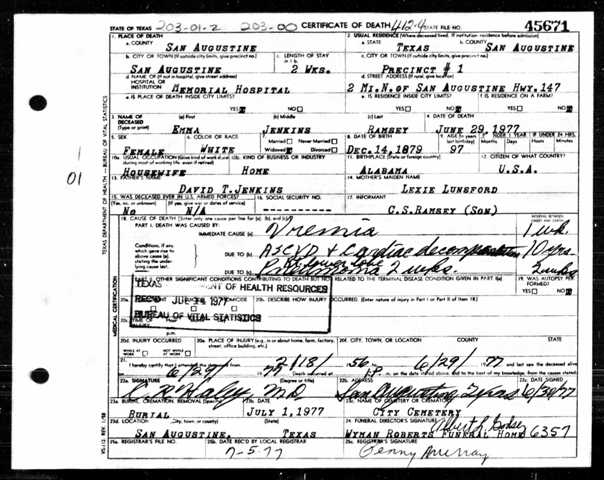 STATE OF TEXAS 203-01-2 203-00 CERTIFICATE OF DEATH 412.4 STATE FILE NO. 45671
1. PLACE OF DEATH 2. USUAL RESIDENCE (Where deceased lived. If institution: residence before admission)
a. COUNTY SAN AUGUSTINE a. STATE TEXAS b. COUNTY SAN AUGUSTINE
b. CITY OR TOWN (If outside city limits, give precinct no.) c. LENGTH OF STAY in 1 b. c. CITY OR TOWN (If outside city limits, give precinct no.)
SAN AUGUSTINE 2 WKS. PRECINCT # 1
d. NAME OF (If not in hospital, give street address) HOSPITAL OR INSTITUTION d. STREET ADDRESS (If rural, give location)
MEMORIAL HOSPITAL 2 MI.N.OF SAN AUGUSTINE HWY.147
e. IS PLACE OF DEATH INSIDE CITY LIMITS? e. IS RESIDENCE INSIDE CITY LIMITS? f. IS RESIDENCE ON A FARM?
YES NO YES NO YES NO
3. NAME OF DECEASED (Type or print) (a) First (b) Middle (c) Last 4. DATE OF DEATH
EMMA JENKINS RAMSEY JUNE 29, 1977
5. SEX 6. COLOR OR RACE 7. Married Never Married 8. DATE OF BIRTH 9. AGE IF UNDER 1 YEAR IF UNDER 24 HRS.
FEMALE WHITE Widowed Divorced DEC.14,1879 97 Months Days Hours Min.
10a. USUAL OCCUPATION (Give kind of work done during most of working life, even if retired) 10b. KIND OF BUSINESS OR INDUSTRY 11. BIRTHPLACE (State or foreign country) 12. CITIZEN OF WHAT COUNTRY?
HOUSEWIFE HOME ALABAMA U.S.A.
13. FATHER'S NAME 14. MOTHER'S MAIDEN NAME
DAVID T.JENKINS LEXIE LUNSFORD
15. WAS DECEASED EVER IN U.S. ARMED FORCES? 16. SOCIAL SECURITY NO. 17. INFORMANT
(Yes, no, or unknown) (If yes, give war or dates of service)
NO N/A ---------- C.S.RAMSEY (SON)
18. CAUSE OF DEATH (Enter only one cause per line for (a), (b), and (c).)
PART I. DEATH WAS CAUSED BY: IMMEDIATE CAUSE (a) Uremia 1 wk.
Conditions, if any, which gave rise to above cause (a), stating the underlying cause last. DUE TO (b) ASCVD & Cardiac decompensation 10 yrs.
DUE TO (c) Rt. lower lobe Pneumonia 2 wks. 2 wks
PART II. OTHER SIGNIFICANT CONDITIONS CONTRIBUTING TO DEATH BUT NOT RELATED TO THE TERMINAL DISEASE CONDITION GIVEN IN PART I(a) 19. WAS AUTOPSY PERFORMED?
YES NO
TEXAS DEPARTMENT OF HEALTH RESOURCES
REC'D JUL 1977
BUREAU OF VITAL STATISTICS
20b. DESCRIBE HOW INJURY OCCURRED. (Enter nature of injury in Part I or Part II of Item 18)
20d. INJURY OCCURRED 20e. PLACE OF INJURY (e.g. in or about home, farm, factory, street, office building, etc.) 20f. CITY, TOWN, OR LOCATION COUNTY STATE
WHILE AT WORK NOT WHILE AT WORK
21. I hereby certify that I attended the deceased from 2/18/ 56 to 6/29/ 77 and last saw the deceased alive
6/29/ 77
22a. SIGNATURE (Degree or title) 22b. ADDRESS 22c. DATE SIGNED
M.D. San Augustine, Texas 6/30/77
23a. BURIAL, CREMATION, REMOVAL (Specify) 23b. DATE 23c. NAME OF CEMETERY OR CREMATORY
BURIAL JULY 1,1977 CITY CEMETERY
23d. LOCATION (City, town, or county) (State) 24. FUNERAL DIRECTOR'S SIGNATURE
SAN AUGUSTINE, TEXAS WYMAN ROBERTS FUNERAL HOME 6357
25a. REGISTRAR'S FILE NO. 25b. DATE REC'D BY LOCAL REGISTRAR 25c. REGISTRAR'S SIGNATURE
7-5-77 Penny Murray
TEXAS DEPARTMENT OF HEALTH — BUREAU OF VITAL STATISTICS
MEDICAL CERTIFICATION
1
01